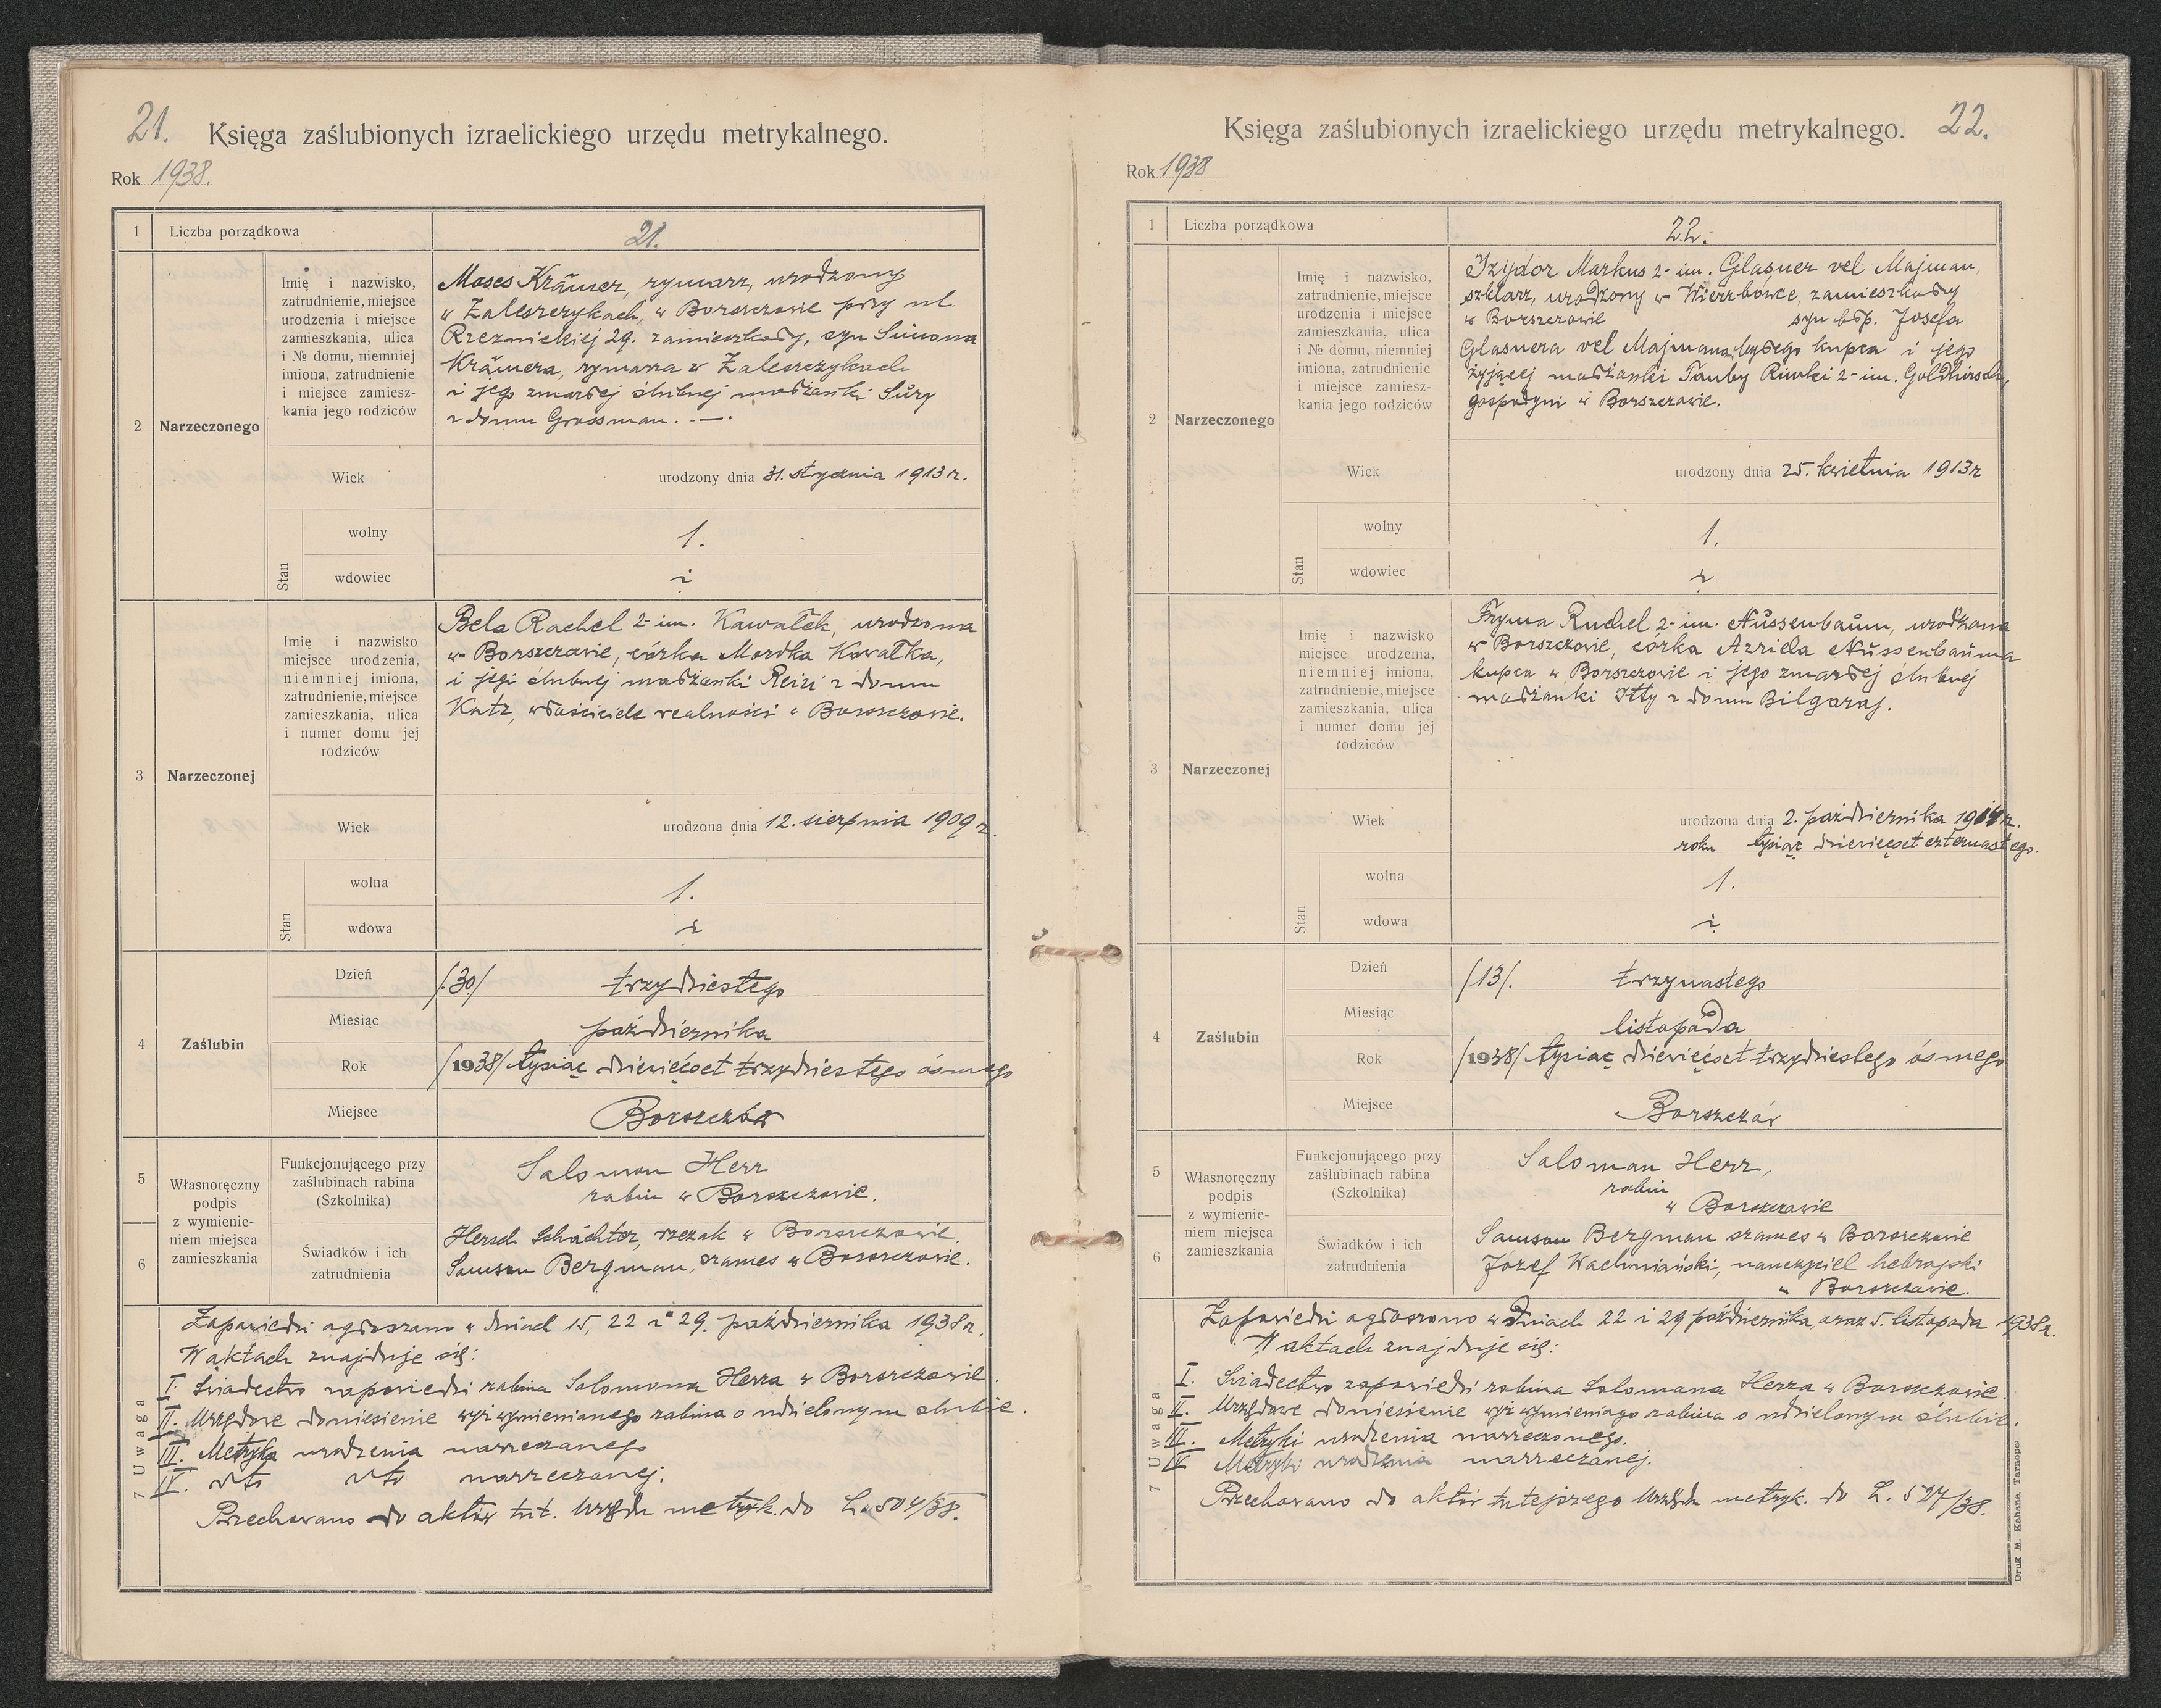 21.
Księga zaślubionych izraelickiego urzędu metrykalnego.
Rok 1938.
1 Liczba porządkowa
21.
2
Narzeczonego
Imię i nazwisko,
zatrudnienie, miejsce
urodzenia i miejsce
zamieszkania, ulica
i № domu, niemniej
imiona, zatrudnienie
i miejsce zamiesz-
kania jego rodziców
Moses Krämer, rymarz, urodzony
w Zaleszczykach, w Borszczowie przy ul.
Rzeznickiej 29. zamieszkały, syn Simona
Krämera, rymarza w Zaleszczykach
i jego zmarłej ślubnej małżonki Süry
z domu Grossman. . — .
Wiek
urodzony dnia 31. stycznia 1913 r.
Stan
wolny
1.
wdowiec
3
Narzeczonej
Imię i nazwisko
miejsce urodzenia,
niemniej imiona,
zatrudnienie, miejsce
zamieszkania, ulica
i numer domu jej
rodziców
Bela Rachel 2-im. Kawałek, urodzona
w Borszczowie, córka Mordka Kawałka,
i jego ślubnej małżonki Reizi z domu
Katz, właściciele realności w Borszczowie.
Wiek
urodzona dnia 12. sierpnia 1909 r.
Stan
wolna
1.
wdowa
4
Zaślubin
Dzień
/30/ trzydziestego
Miesiąc
października
Rok
/1938/ tysiąc dziewięćset trzydziestego ósmego
Miejsce
Borszczów
5
6
Własnoręczny
podpis
z wymienie-
niem miejsca
zamieszkania
Funkcjonującego przy
zaślubinach rabina
(Szkolnika)
Salomon Herr
rabin w Borszczowie.
Świadków i ich
zatrudnienia
Hersch Schächter, rzezak w Borszczowie.
Samson Bergman, szames w Borszczowie.
7 Uwaga
Zapowiedzi ogłoszano w dniach 15, 22 i 29. października 1938 r.
W aktach znajduje się:
I. Świadectwo zapowiedzi rabina Salomona Herra w Borszczowie.
II. Urzędowe doniesienie wyż wymienionego rabina o udzielonym ślubie.
III. Metryka urodzenia narzeczonego
IV. dto dto narzeczonej.
Przechowano do aktów tut. Urzędu metryk. do L. 504/38.
Księga zaślubionych izraelickiego urzędu metrykalnego.
22.
Rok 1938
1 Liczba porządkowa
22.
2
Narzeczonego
Imię i nazwisko,
zatrudnienie, miejsce
urodzenia i miejsce
zamieszkania, ulica
i № domu, niemniej
imiona, zatrudnienie
i miejsce zamiesz-
kania jego rodziców
Izydor Markus 2-im. Glasner vel Majman,
szklarz, urodzony w Wierzbówce, zamieszkały
w Borszczowie syn błp. Josefa
Glasnera vel Majmana kupca i jego
żyjącej małżonki Tauby Riwki 2-im. Goldhirsch,
gospodyni w Borszczowie.
Wiek
urodzony dnia 25. kwietnia 1913 r
Stan
wolny
1.
wdowiec
3
Narzeczonej
Imię i nazwisko
miejsce urodzenia,
niemniej imiona,
zatrudnienie, miejsce
zamieszkania, ulica
i numer domu jej
rodziców
Fryma Ruchel 2-im. Nüssenbaum, urodzona
w Borszczowie, córka Azriela Nüssenbauma
kupca w Borszczowie i jego zmarłej ślubnej
małżonki Itty z domu Bilgoraj.
Wiek
urodzona dnia 2. października 1914 r.
roku tysiąc dziewięćset czternastego.
Stan
wolna
1.
wdowa
4
Zaślubin
Dzień
/13/. trzynastego
Miesiąc
listopada
Rok
/1938/ tysiąc dziewięćset trzydziestego ósmego
Miejsce
Borszczów
5
6
Własnoręczny
podpis
z wymienie-
niem miejsca
zamieszkania
Funkcjonującego przy
zaślubinach rabina
(Szkolnika)
Saloman Herr,
rabin
w Borszczowie
Świadków i ich
zatrudnienia
Samson Bergman szames w Borszczowie
Józef Wachniański, nauczyciel hebrajski
w Borszczowie.
7 Uwaga
Zapowiedzi ogłoszono w dniach 22 i 29 października, oraz 5. listopada 1938 r.
W aktach znajduje się:
I. Świadectwo zapowiedzi rabina Salomana Herra w Borszczowie.
II. Urzędowe doniesienie wyż wymieniago rabina o udzielonym ślubie.
III. Metryki urodzenia narzeczonego.
IV Metryki urodzenia narzeczonej.
Przechowano do aktów tutejszego Urzędu metryk. do L. 527/38.
Druk M. Kahane, Tarnopol